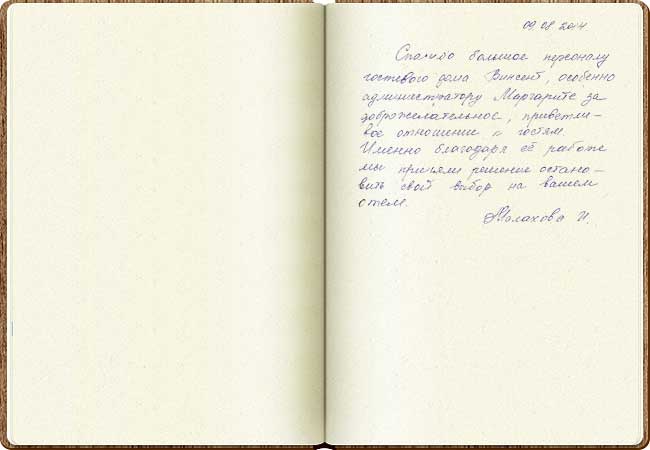 09.08.2014
Спасибо большое персоналу
гостевого дома Винсент, особенно
администратору Маргарите за
доброжелательное, приветли-
вое отношение к гостям.
Именно благодаря её работе
мы приняли решение остано-
вить свой выбор на вашем
отеле.
Малахова И.